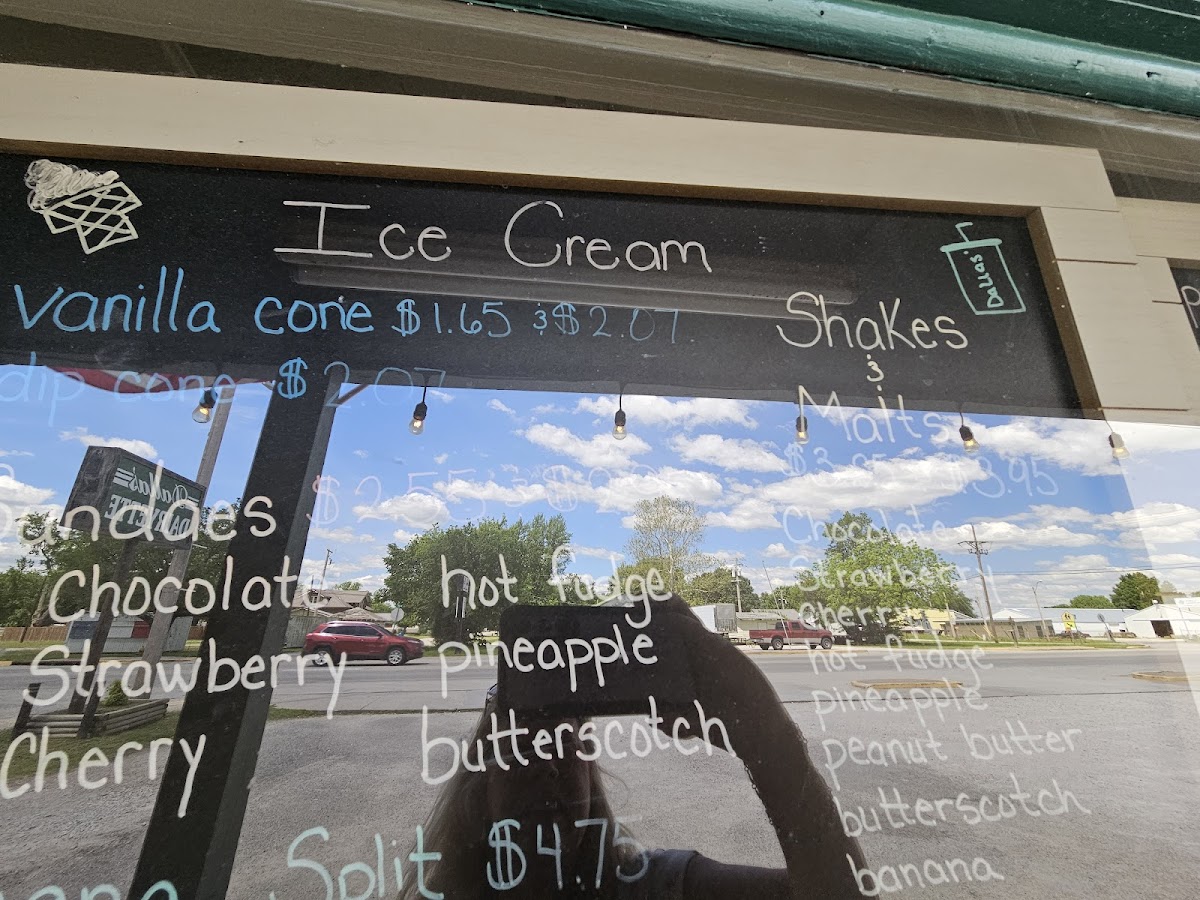 Ice Cream
vanilla cone $1.65 & $2.07
dip cone $2.07
Shakes
&
Malts
$3.95
Chocolate
Strawberry
Cherry
hot fudge
pineapple
peanut butter
butterscotch
banana
Dallas'
$2.55 &
Chocolate
Strawberry
Cherry
hot fudge
pineapple
butterscotch
Split $4.75
Dallas